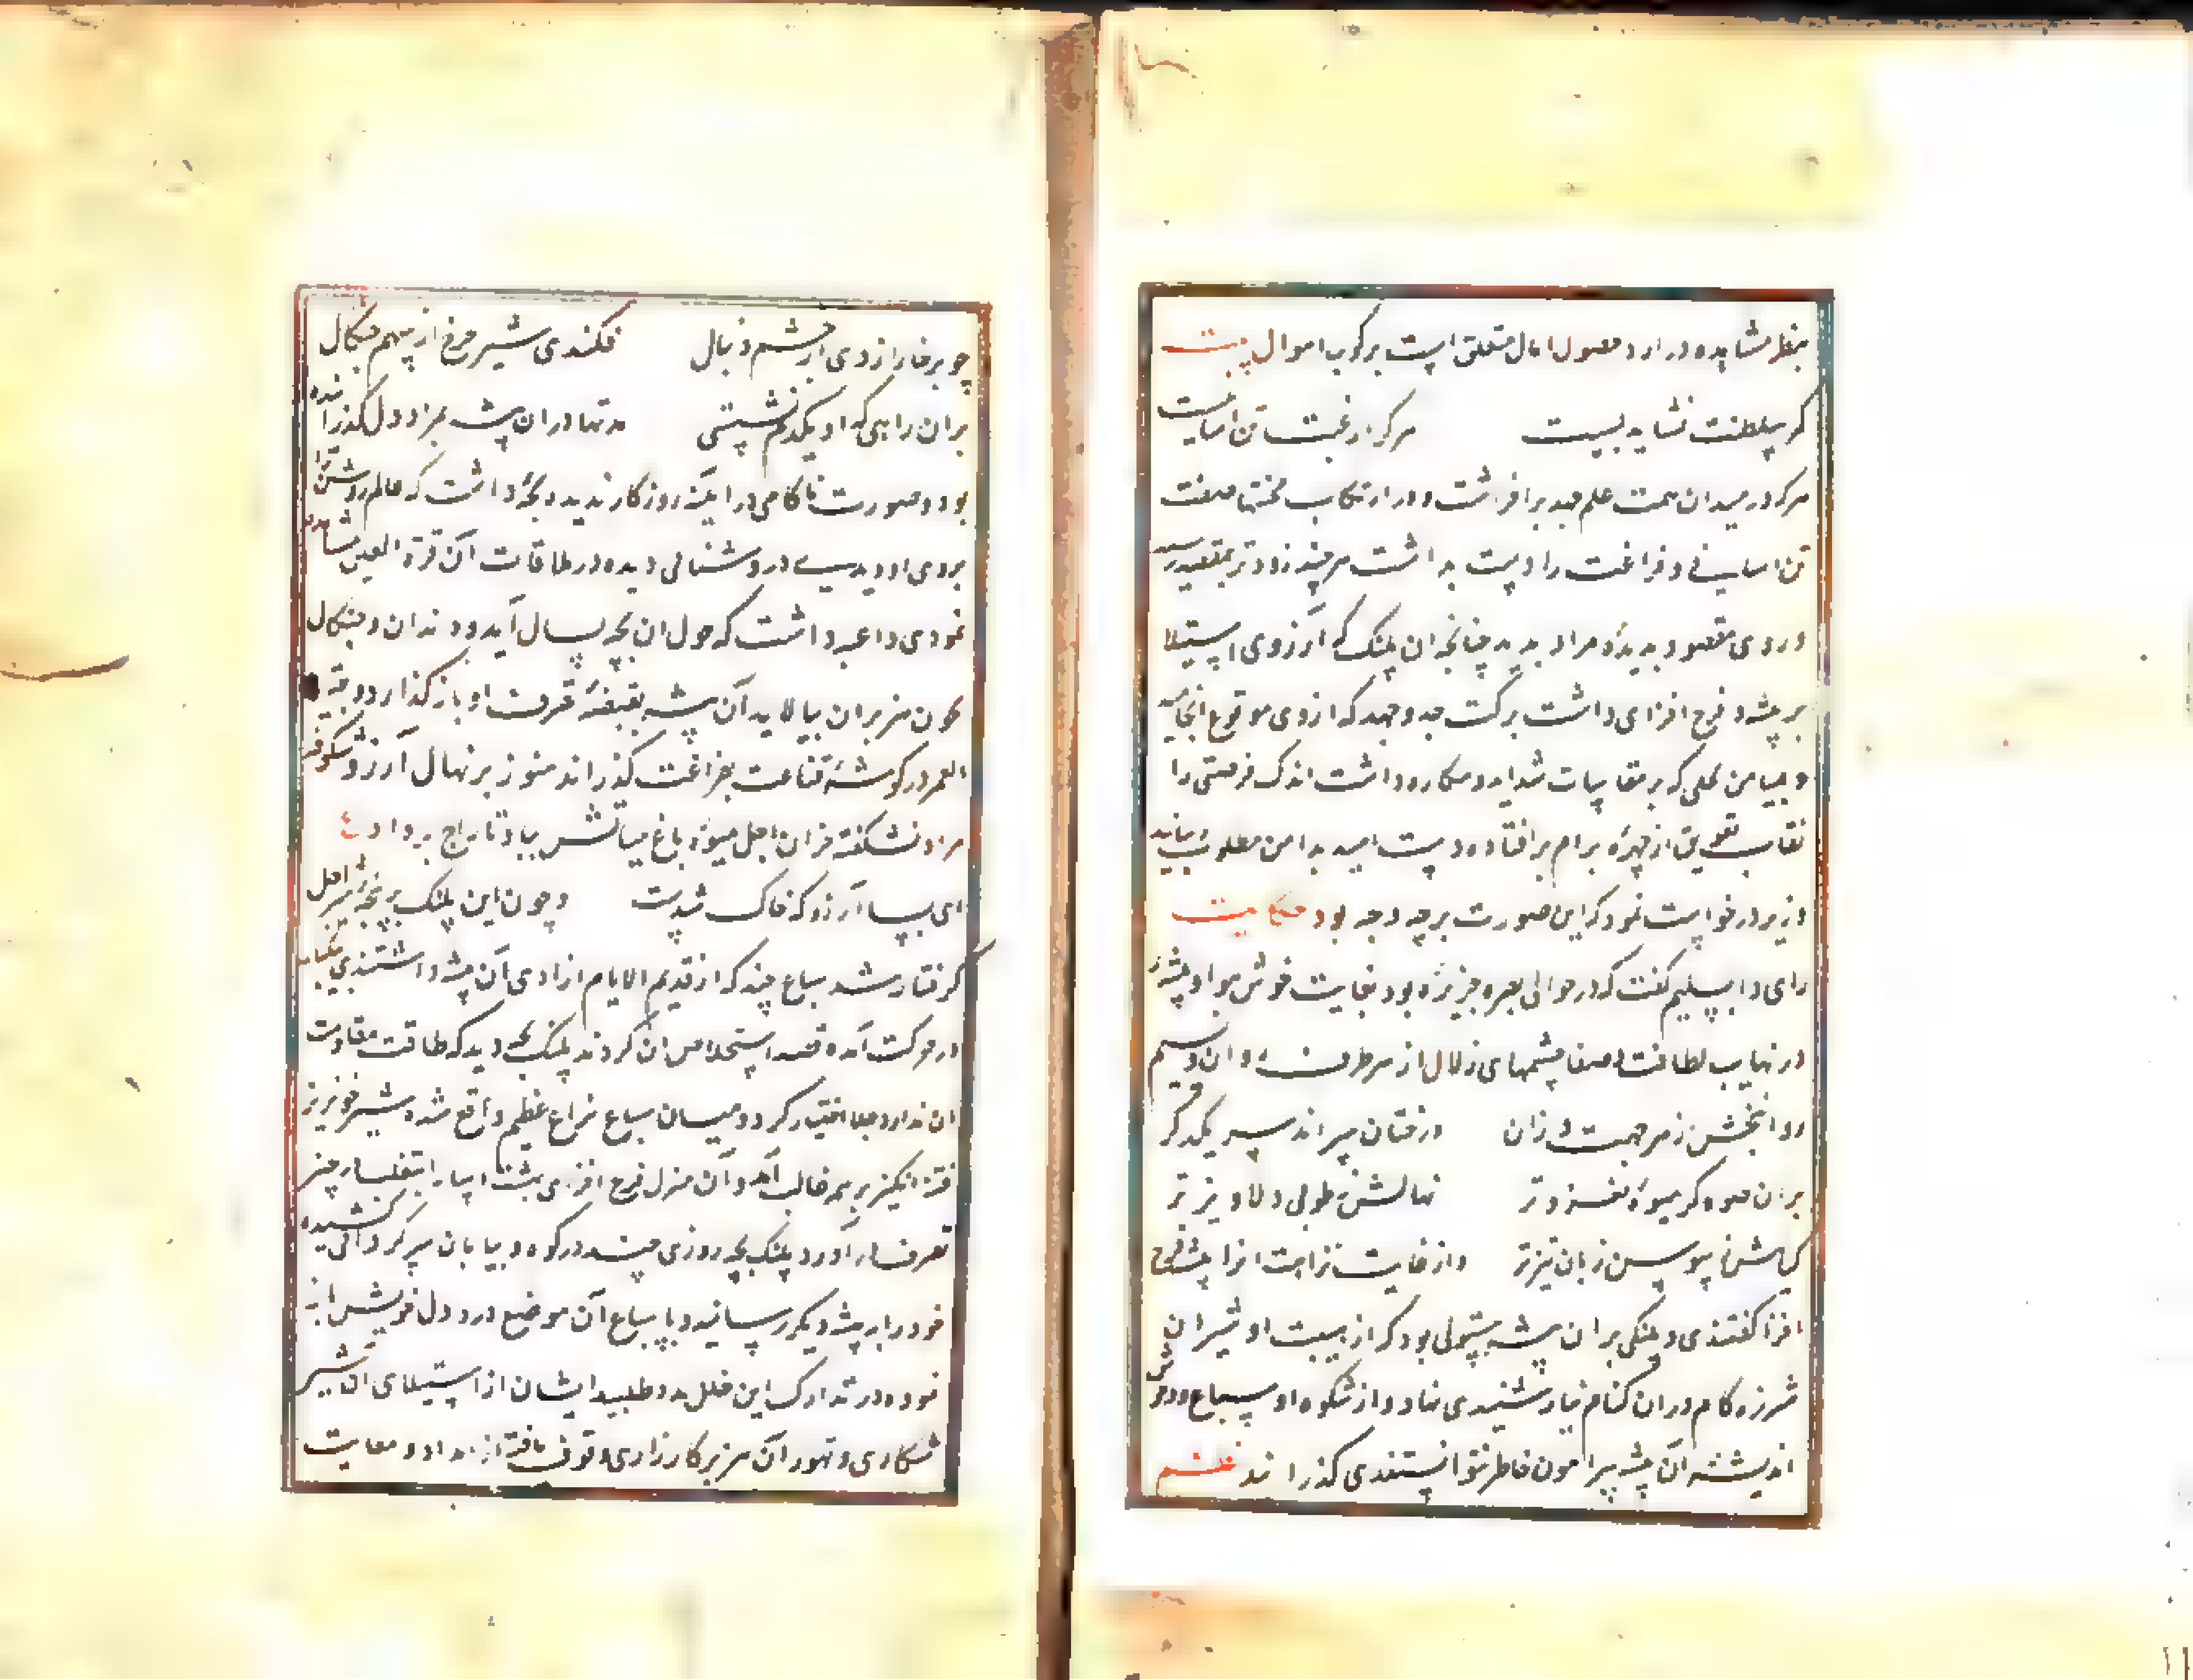 بنظر مشاهده در ارد حصول امال متعلق است برکوب اهوال بیت
کر بسلطنت نشاید بست مرکرا رغبت تن اسانیست
مرکه در میدان همت علم جهد برافراشت و در ارتکاب محنتها صفت
تن اسانی و فراغت را دست بداشت مرچند زودتر بمقصد رسد
و روی مقصود بدیدهٔ مراد بدید چنانچه ان پلنک که آرزوی استیلا
بر بیشه فرح افزای داشت ببرکت جد و جهد که ازوی موقوع انجامید
و بمیامن تحملی که بر مقاسات شداید و مکاره داشت اندک فرصتی را
نقاب تعویق از چهرهٔ مرام برافتاده دست امید بدامن مطلوب رسانید
وزیر درخواست نمود که این صورت برچه وجه بود حکایت
رای دابشلیم کفت که در حوالی بصره جزیرهٔ بود بغایت خوش هوا و بیشهٔ
در نهایت لطافت و صفا چشمهای زلال از مرطرف روان و نسیم
روانبخش زمر جهت وزان درختان سر اندر سر یکدکر
بران میوه کر میوهٔ نغز و تر نهالش ز طوبی دلاویزتر
کیاهش ز سوسن زبان تیزتر و از غایت نزاهت انرا بیشهٔ فرح
افزا کفتندی و پلنکی بران بیشه مستولی بود که از هیبت او شیران
شرزه کام دران کنام نیارستندی نهاد و از شکوه او سباع و وحوش
اندیشه آن بیشه پیرامون خاطر نتوانستندی کذرانید نظم
چو بر خارا زدی از خشم دنبال فکندی شیر چرخ از سهم چنکال
بران راهی که او یکدم نشستی مدتها دران بیشه بمراد دل کذرانیده
بود و صورت ناکامی در اینهٔ روزکار ندیده بچهٔ داشت که عالم روشن را
بروی او دیدی و روشنائی دیده در ملاقات آن قرة العین مشاهده
نمودی داعیه داشت که چون ان بچه بسال آید و دندان و چنکال
بخون هزبران بیالاید آن بیشه بقبضهٔ تصرف او باز کذارد و بقیه
العمر در کوشهٔ قناعت بفراغت کذراند هنوز بر نهال آرزو شکوفه
مراد نشکفته خزان اجل میوهٔ باغ حیاتش بباد تاراج برداد ع
ای بسا آرزو که خاک شدست و چون این پلنک بپنجهٔ شیر اجل
کرفتار شد سباع چند که از قدیم الایام ازادی آن بیشه داشتندی بیکبار
در حرکت آمده قصد استخلاص ان کردند پلنک بچه دید که طاقت مقاومت
ان ندارد جلا اختیار کرد و میان سباع نزاع عظیم واقع شده شیر خونریز
فتنه انکیز بر همه غالب آمد و آن منزل فرح افزای بهشت اسا را بتغلب در حیز
تصرف در آورد پلنک بچه روزی چند در کوه و بیابان سرکردانی کشیده
خود را به بیشه دیکر رسانید و با سباع آن موضع درد دل خویش باز
نموده در تدارک این خلل مدد طلبید ایشان از استیلای ان شیر
شکاری و تهور آن هزبر کارزاری وقوف یافته از امداد و معاونت